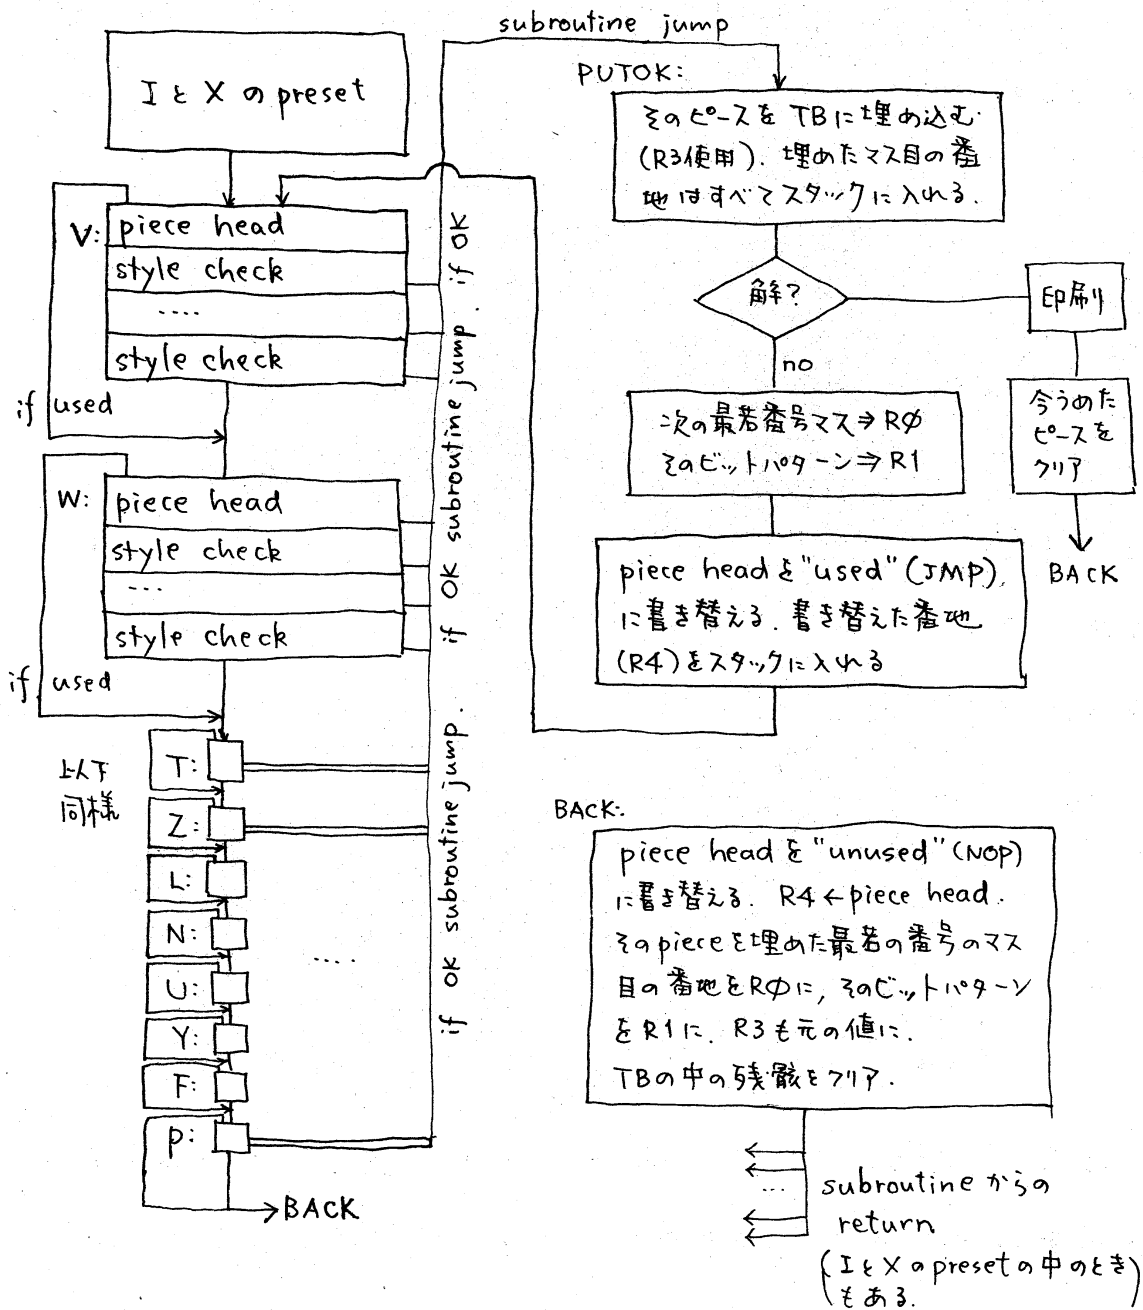 IとXのpreset
V:
piece head
style check
....
style check
if used
W:
piece head
style check
...
style check
if used
以下
同様
T:
Z:
L:
N:
U:
Y:
F:
P:
....
→BACK
if OK subroutine jump. if OK subroutine jump. if OK
subroutine jump
PUTOK:
そのピースをTBに埋め込む
(R3使用). 埋めたマス目の番
地はすべてスタックに入れる.
解?
no
印刷
今うめた
ピースを
クリア
BACK
次の最若番号マス⇒RØ
そのビットパターン⇒R1
piece headを"used"(JMP)
に書き替える. 書き替えた番地
(R4)をスタックに入れる
BACK:
piece headを"unused"(NOP)
に書き替える. R4←piece head.
そのpieceを埋めた最若の番号のマス
目の番地をRØに, そのビットパターン
をR1に. R3も元の値に.
TBの中の残骸をクリア.
...
subroutineからの
return
(IとXのpresetの中のとき
もある.)